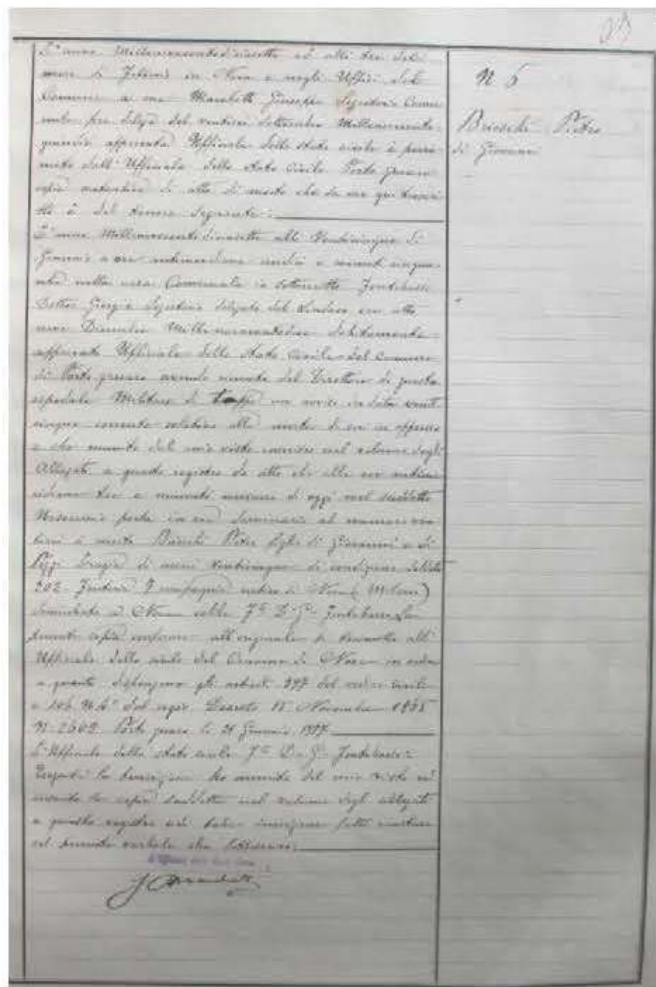 L'anno Millenovecentodiciasette ed alli tre del
mese di Febbraio in Nova e negli Uffici del
Comune a me Marchetti Giuseppe Segretario Comu
nale per delega del ventisei Settembre Millenovecento
quindici approvata Ufficiale dello Stato civile è perve
nuta dall'Ufficiale dello Stato Civile Portogruaro
copia autentica di atto di morte che da me qui trascrit
to è del tenore seguente:
L'anno Millenovecentodiciasette alli Venticinque di
Gennaio a ore antimeridiane undici e minuti cinquan
ta nella casa Comunale io sottoscritto
Dottor Giorgio Segretario delegato dal Sindaco con atto
nove Dicembre Millenovecentododici debitamente
approvato Ufficiale dello Stato Civile del Comune
di Portogruaro avendo ricevuto dal Direttore di questo
ospedale Militare di tappa un avviso in data venti
cinque corrente relativo alla morte di cui in appresso
e che munito del mio visto inserisco nel volume degli
Allegati a questo registro do atto che alle ore antime
ridiane tre e minuti di oggi nel suddetto
Nosocomio posto in via Seminario al numero
è morto Brioschi Pietro figlio di Giovanni e di
di anni venticinque di condizione soldato
202 Fanteria 7 compagnia nativo di Nova (Milano)
domiciliato a Nova
presente copia conforme all'originale si trasmette all'
Ufficiale dello civile del Comune di Nova in ordine
a quanto dispongono gli articoli 397 del codice civile
e 106 N. 6° del regio Decreto 15 Novembre 1865
N. 2602 Portogruaro li Gennaio 1917
L'Ufficiale dello stato civile
Eseguita la trascrizione ho munito del mio visto ed
inserito la copia suddetta nel volume degli allegati
a questo registro
nel presente verbale che sottoscrivo:
N 6
Brioschi Pietro
di Giovanni